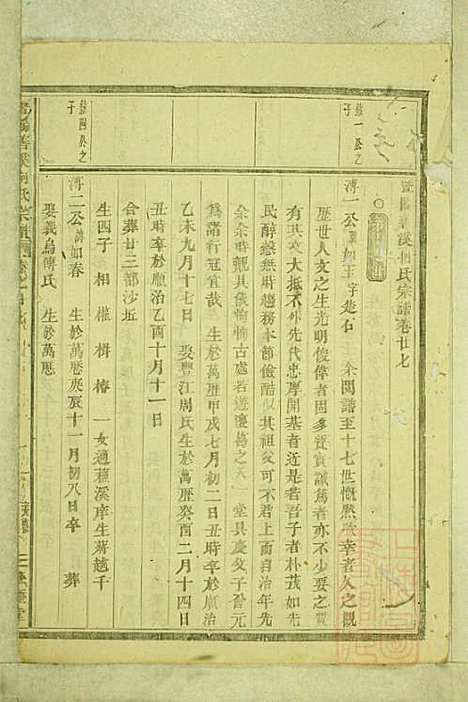 溪何氏宗譜卷廿七
一公之
子
溥一公諱如玉字楚石 余閱譜至十七世慨然
歷世人文之生光明俊偉者固多資實誠篤者亦不少要之質
有其文大抵不外先代忠厚開基者近是若吾子者朴茂如先
民醇慤無時趨務本節儉酷似其祖父可不君上面自治年先
余余時覩其儀恂恂古處若遊懷葛之天 堂具慶父子晉元
為諸行冠宜哉 生於萬曆甲戌七月初二日丑時卒於順治
乙未九月十七日 娶豐江周氏生於萬曆癸酉二月十四日
丑時卒於順治乙酉十月十一日
合葬廿三都沙坵
生四子 相 權 楫 椿 一女適 溪 生蔣越千
四公之
子
溥二公諱如春 生於萬曆庚辰十一月初八日卒 葬
娶義烏傅氏 生於萬曆